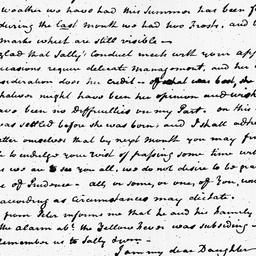 weather we have had this Summer has been f
during the last month we had two Frosts, and t
marks which are still visible —
glad that Sally's Conduct meets with your app
occasions require delicate management, and her
consideration does her credit —
whatever might have been her opinion and wish
have been no difficulties on my Part. on this
was settled before she was born, and I shall adhe
flatter ourselves that by next Month you may fi
to indulge your Wish of passing some time wit
as we are to see you all, we do not desire to be gra
of Prudence — all, or some, or one, of you, wo
according as Circumstances may dictate.
from Peter informs me that he and his Family
the alarm abt. the Yellow Fever was subsiding
Remember us to Sally
I am my dear Daughter